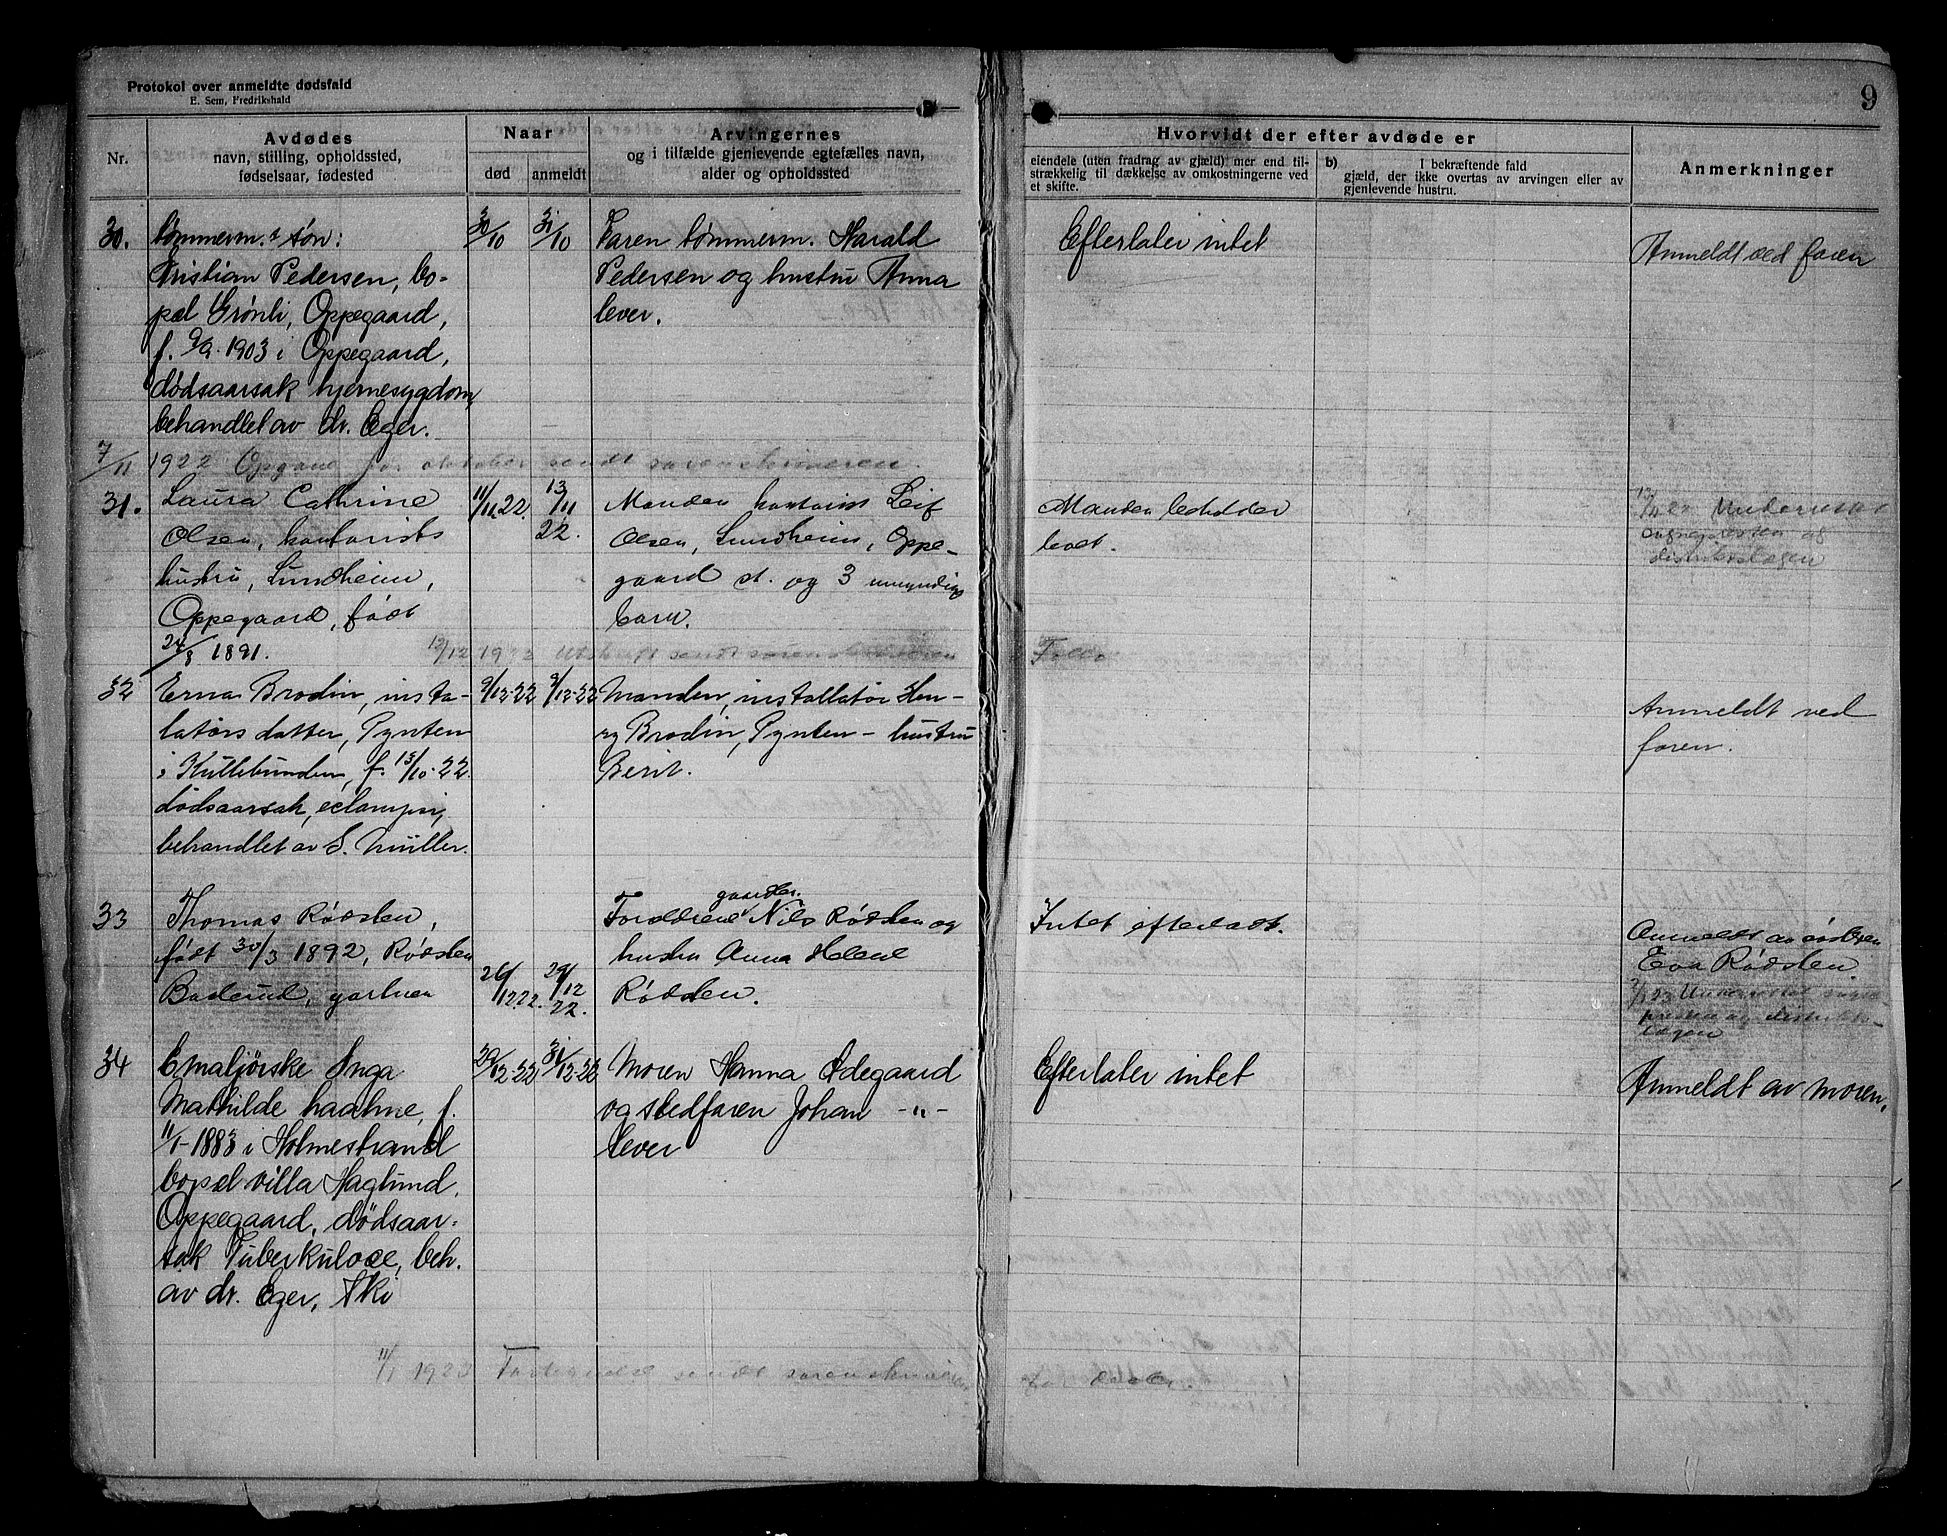 9
Protokol over anmeldte dødsfald
E. Sem, Fredrikshald
Nr.
Avdødes
navn, stilling, opholdssted,
fødselsaar, fødested
Naar
død
anmeldt
Arvingernes
og i tilfælde gjenlevende egtefælles navn,
alder og opholdssted
Hvorvidt der efter avdøde er
eiendele (uten fradrag av gjæld) mer end til-
strækkelig til dækkelse av omkostningerne ved
et skifte.
b) I bekræftende fald
gjæld, der ikke overtas av arvingen eller av
gjenlevende hustru.
Anmerkninger
30.
tømmerm.s søn:
Kristian Pedersen, bo-
pæl Grønli, Oppegaard,
f. 9/9-1903 i Oppegaard,
dødsaarsak hjernesygdom,
behandlet av dr. Eger.
30/10
31/10
Faren tømmerm. Harald
Pedersen og hustru Anna
lever.
Efterlater intet
Anmeldt ved faren
7/11 1922 Opgave for oktober sendt sorenskriveren.
31.
Laura Cathrine
Olsen, kontorists
hustru, Lundheim,
Oppegaard, født
24/8 1891.
11/11 22.
13/11
22.
Manden kontorist Leif
Olsen, Lundheim, Oppe-
gaard st. og 3 umyndige
barn.
Manden beholder
boet.
13/11 22 Underrettet
sognepresten og
distriktslægen
12/12 1922 Utskrift sendt sorenskriveren
Follo
32
Erna Brodin, insta-
latørs datter, Pynten
i Kullebunden, f. 15/10-22
dødsaarsak, eclampsi,
behandlet av S. Müller.
9/12-22
9/12-22
Manden, installatør Hen-
ry Brodin, Pynten - hustru
Berit.
Anmeldt ved
faren.
33
Thomas Rødsten,
født 30/3 1892, Rødsten
Bøderud, gartner
26/12 22.
29/12
22.
gaardbr.
Forældrene Nils Rødsten og
hustru Anna Helene
Rødsten.
Intet efterladt.
Anmeldt av søsteren
Eva Rødsten.
2/1 23 Underrettet sogne-
presten og distrikts-
lægen
34
Emaljørske Inga
Mathilde Haahne, f.
11/1-1883 i Holmestrand
bopæl villa Haglund.
Oppegaard, dødsaar-
sak Tuberkulose, beh.
av dr. Eger, Ski
30/12-22
31/12-22
Moren Hanna Ødegaard
og stedfaren Johan -"-
lever
Efterlater intet
Anmeldt av moren.
11/1 1923 Fortegnelse sendt sorenskriveren
for